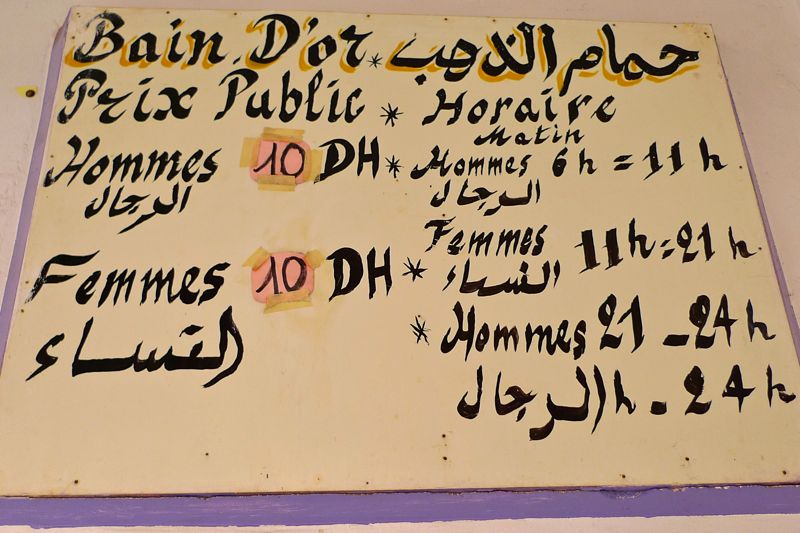 Bain D'or * حمام الذهب
Prix Public * Horaire
Matin
Hommes 10 DH * Hommes 6h = 11h
الرجال الرجال
Femmes 10 DH * Femmes 11h = 21h
النساء النساء
* Hommes 21 - 24h
الرجال h - 24h